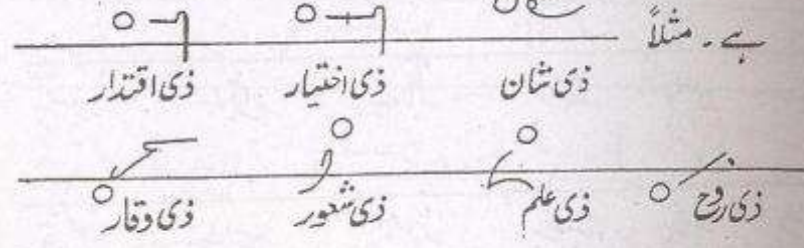 ہے ۔ مثلاً
ذی شان ذی اختیار ذی اقتدار
ذی روح ذی علم ذی شعور ذی وقار